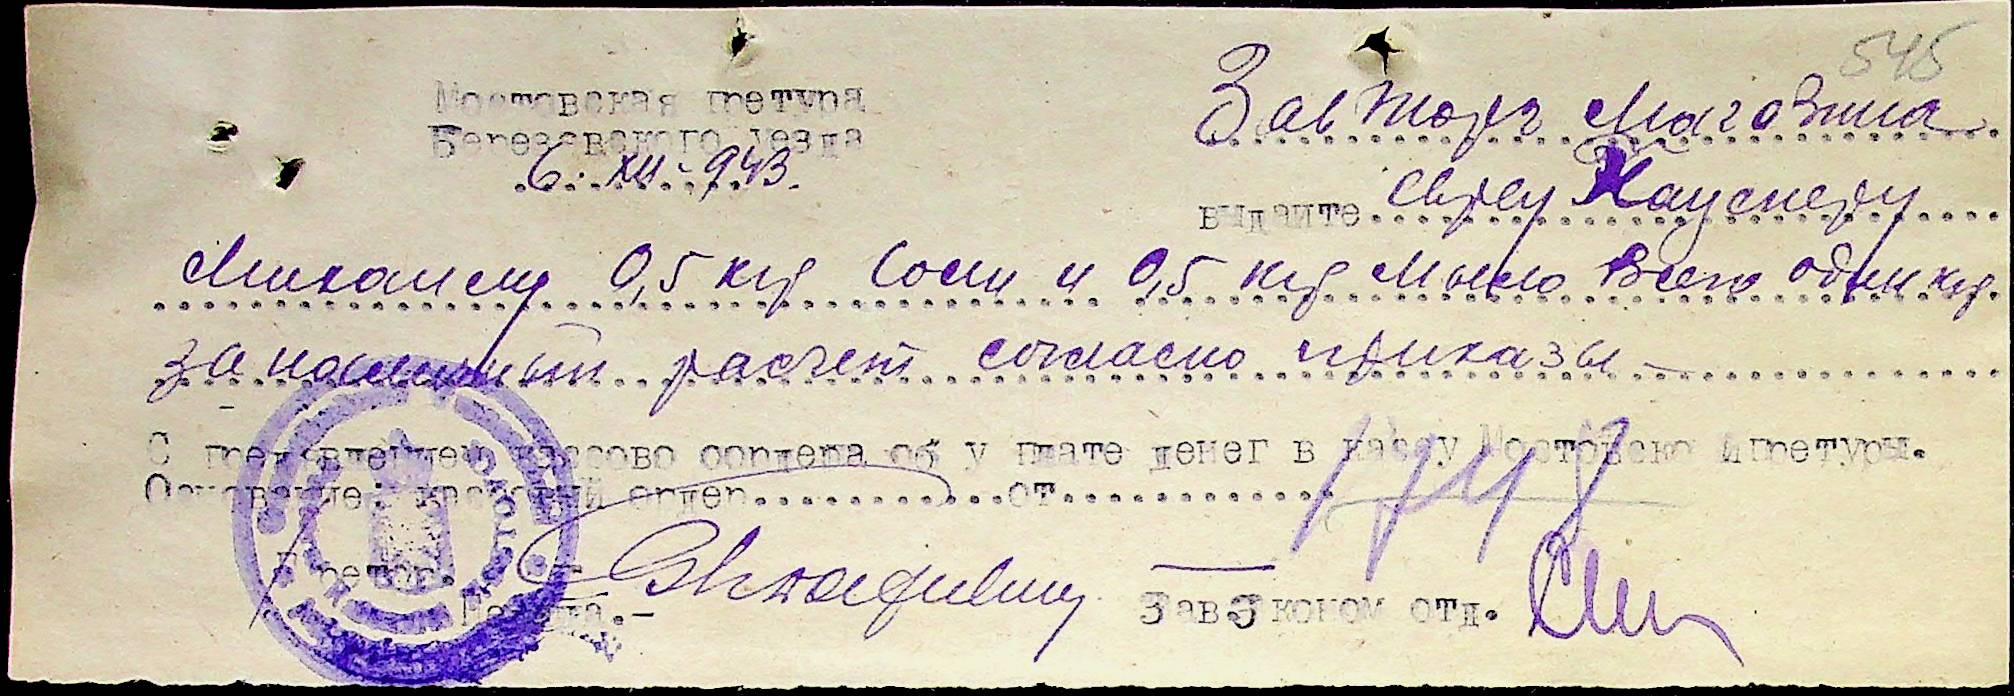 545
Мостовская претура
Березовского уезда
6. XII - 943.
Зав Торг Магазина
выдайте Еврею Каунеру
Михаилу 0,5 кгр Соли и 0,5 кгр Мыло Всего один кгр.
за наличный расчет согласно приказы —
С пред'влением кассово оордера об у плате денег в кассу Мостовско й претуры.
Основание: кассовый ордер............от.............
1748
Претор.
Зав Эконом отд.